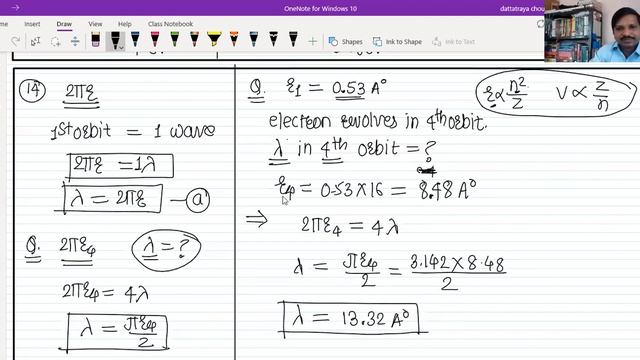 OneNote for Windows 10
dattatraya chou
Home Insert Draw View Help Class Notebook
Shapes Ink to Shape Ink to Text
14 2πr
1st orbit = 1 wave
2πr = 1λ
λ = 2πr — a
Q. 2πr₄ λ = ?
2πr₄ = 4λ
λ = πr₄/2
Q. r₁ = 0.53 A°
r ∝ n²/z V ∝ z/n
electron revolves in 4th orbit.
λ in 4th orbit = ?
r₄ = 0.53 × 16 = 8.48 A°
⇒ 2πr₄ = 4λ
λ = πr₄/2 = 3.142 × 8.48/2
λ = 13.32 A°